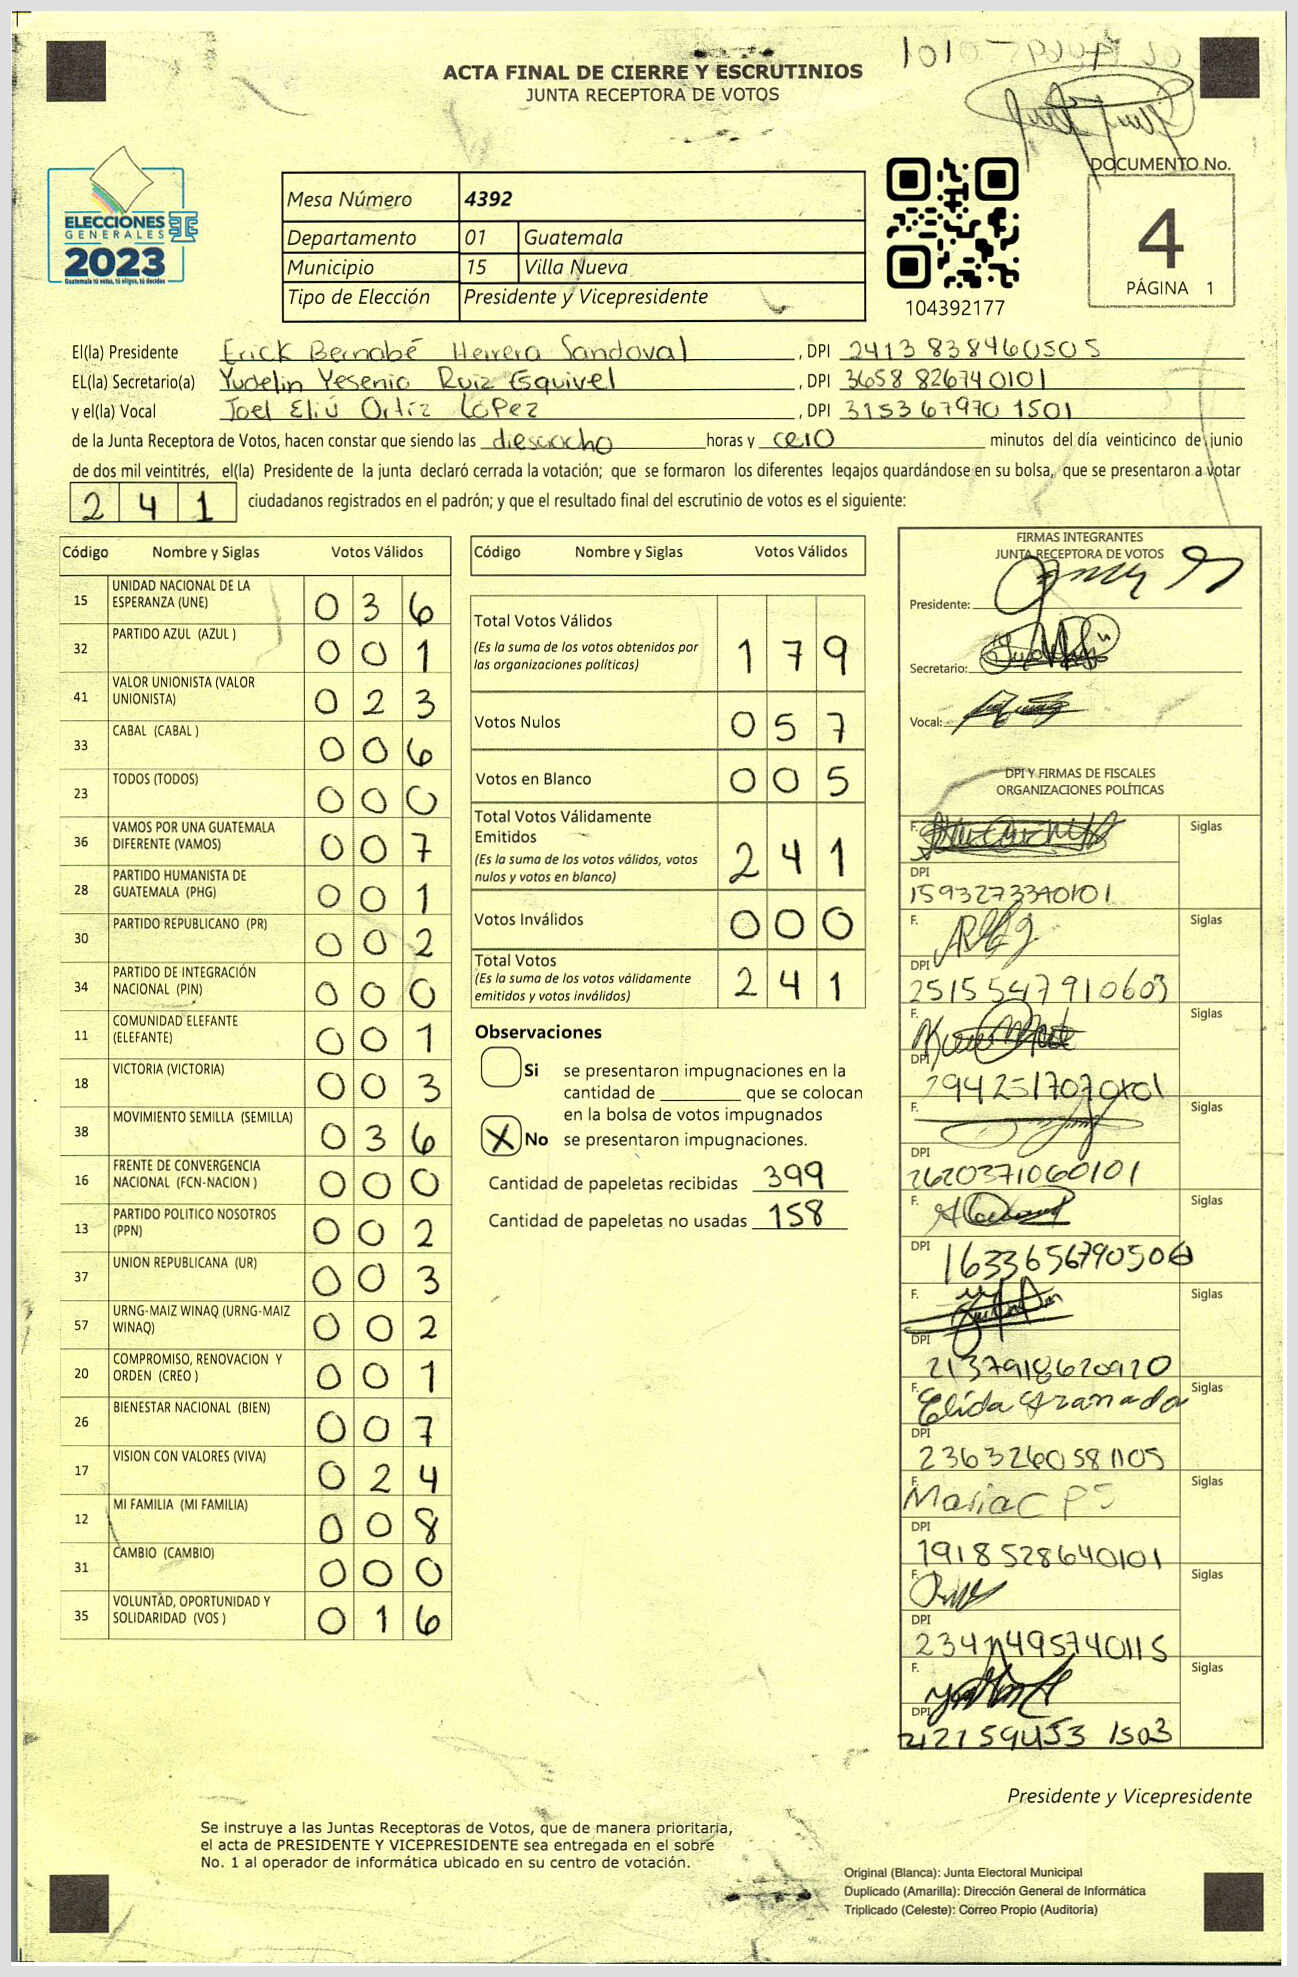 ACTA FINAL DE CIERRE Y ESCRUTINIOS
JUNTA RECEPTORA DE VOTOS
DOCUMENTO No.
4
PÁGINA 1
ELECCIONES
GENERALES
2023
Guatemala tú votas, tú eliges, tú decides
Mesa Número 4392
Departamento 01 Guatemala
Municipio 15 Villa Nueva
Tipo de Elección Presidente y Vicepresidente
104392177
El(la) Presidente Erick Bernabé Herrera Sandoval , DPI 2413 83846 0505
EL(la) Secretario(a) Yudelin Yesenia Ruiz Esquivel , DPI 3658 82674 0101
y el(la) Vocal Joel Eliú Ortiz López , DPI 3153 67970 1501
de la Junta Receptora de Votos, hacen constar que siendo las diesiocho horas y cero minutos del día veinticinco de junio
de dos mil veintitrés, el(la) Presidente de la junta declaró cerrada la votación; que se formaron los diferentes legajos guardándose en su bolsa, que se presentaron a votar
2 4 1 ciudadanos registrados en el padrón; y que el resultado final del escrutinio de votos es el siguiente:
Código Nombre y Siglas Votos Válidos
15 UNIDAD NACIONAL DE LA ESPERANZA (UNE) 0 3 6
32 PARTIDO AZUL (AZUL ) 0 0 1
41 VALOR UNIONISTA (VALOR UNIONISTA) 0 2 3
33 CABAL (CABAL ) 0 0 6
23 TODOS (TODOS) 0 0 0
36 VAMOS POR UNA GUATEMALA DIFERENTE (VAMOS) 0 0 7
28 PARTIDO HUMANISTA DE GUATEMALA (PHG) 0 0 1
30 PARTIDO REPUBLICANO (PR) 0 0 2
34 PARTIDO DE INTEGRACIÓN NACIONAL (PIN) 0 0 0
11 COMUNIDAD ELEFANTE (ELEFANTE) 0 0 1
18 VICTORIA (VICTORIA) 0 0 3
38 MOVIMIENTO SEMILLA (SEMILLA) 0 3 6
16 FRENTE DE CONVERGENCIA NACIONAL (FCN-NACION ) 0 0 0
13 PARTIDO POLITICO NOSOTROS (PPN) 0 0 2
37 UNION REPUBLICANA (UR) 0 0 3
57 URNG-MAIZ WINAQ (URNG-MAIZ WINAQ) 0 0 2
20 COMPROMISO, RENOVACION Y ORDEN (CREO ) 0 0 1
26 BIENESTAR NACIONAL (BIEN) 0 0 7
17 VISION CON VALORES (VIVA) 0 2 4
12 MI FAMILIA (MI FAMILIA) 0 0 8
31 CAMBIO (CAMBIO) 0 0 0
35 VOLUNTAD, OPORTUNIDAD Y SOLIDARIDAD (VOS ) 0 1 6
Código Nombre y Siglas Votos Válidos
Total Votos Válidos 1 7 9
(Es la suma de los votos obtenidos por
las organizaciones políticas)
Votos Nulos 0 5 7
Votos en Blanco 0 0 5
Total Votos Válidamente
Emitidos 2 4 1
(Es la suma de los votos válidos, votos
nulos y votos en blanco)
Votos Inválidos 0 0 0
Total Votos 2 4 1
(Es la suma de los votos válidamente
emitidos y votos inválidos)
Observaciones
Si se presentaron impugnaciones en la
cantidad de ________ que se colocan
en la bolsa de votos impugnados
X No se presentaron impugnaciones.
Cantidad de papeletas recibidas 399
Cantidad de papeletas no usadas 158
FIRMAS INTEGRANTES
JUNTA RECEPTORA DE VOTOS
Presidente:
Secretario:
Vocal:
DPI Y FIRMAS DE FISCALES
ORGANIZACIONES POLÍTICAS
F. Siglas
DPI
1593273340101
F. Siglas
DPI
2515547910603
F. Siglas
DPI
F. Siglas
DPI
2620371060101
F. Siglas
DPI
F. Siglas
DPI
2137918620920
F. Elida Granado Siglas
DPI
2363260581105
F. Maria C P Siglas
DPI
1918528640101
F. Siglas
DPI
F. Siglas
DPI
Presidente y Vicepresidente
Se instruye a las Juntas Receptoras de Votos, que de manera prioritaria,
el acta de PRESIDENTE Y VICEPRESIDENTE sea entregada en el sobre
No. 1 al operador de informática ubicado en su centro de votación.
Original (Blanca): Junta Electoral Municipal
Duplicado (Amarilla): Dirección General de Informática
Triplicado (Celeste): Correo Propio (Auditoría)